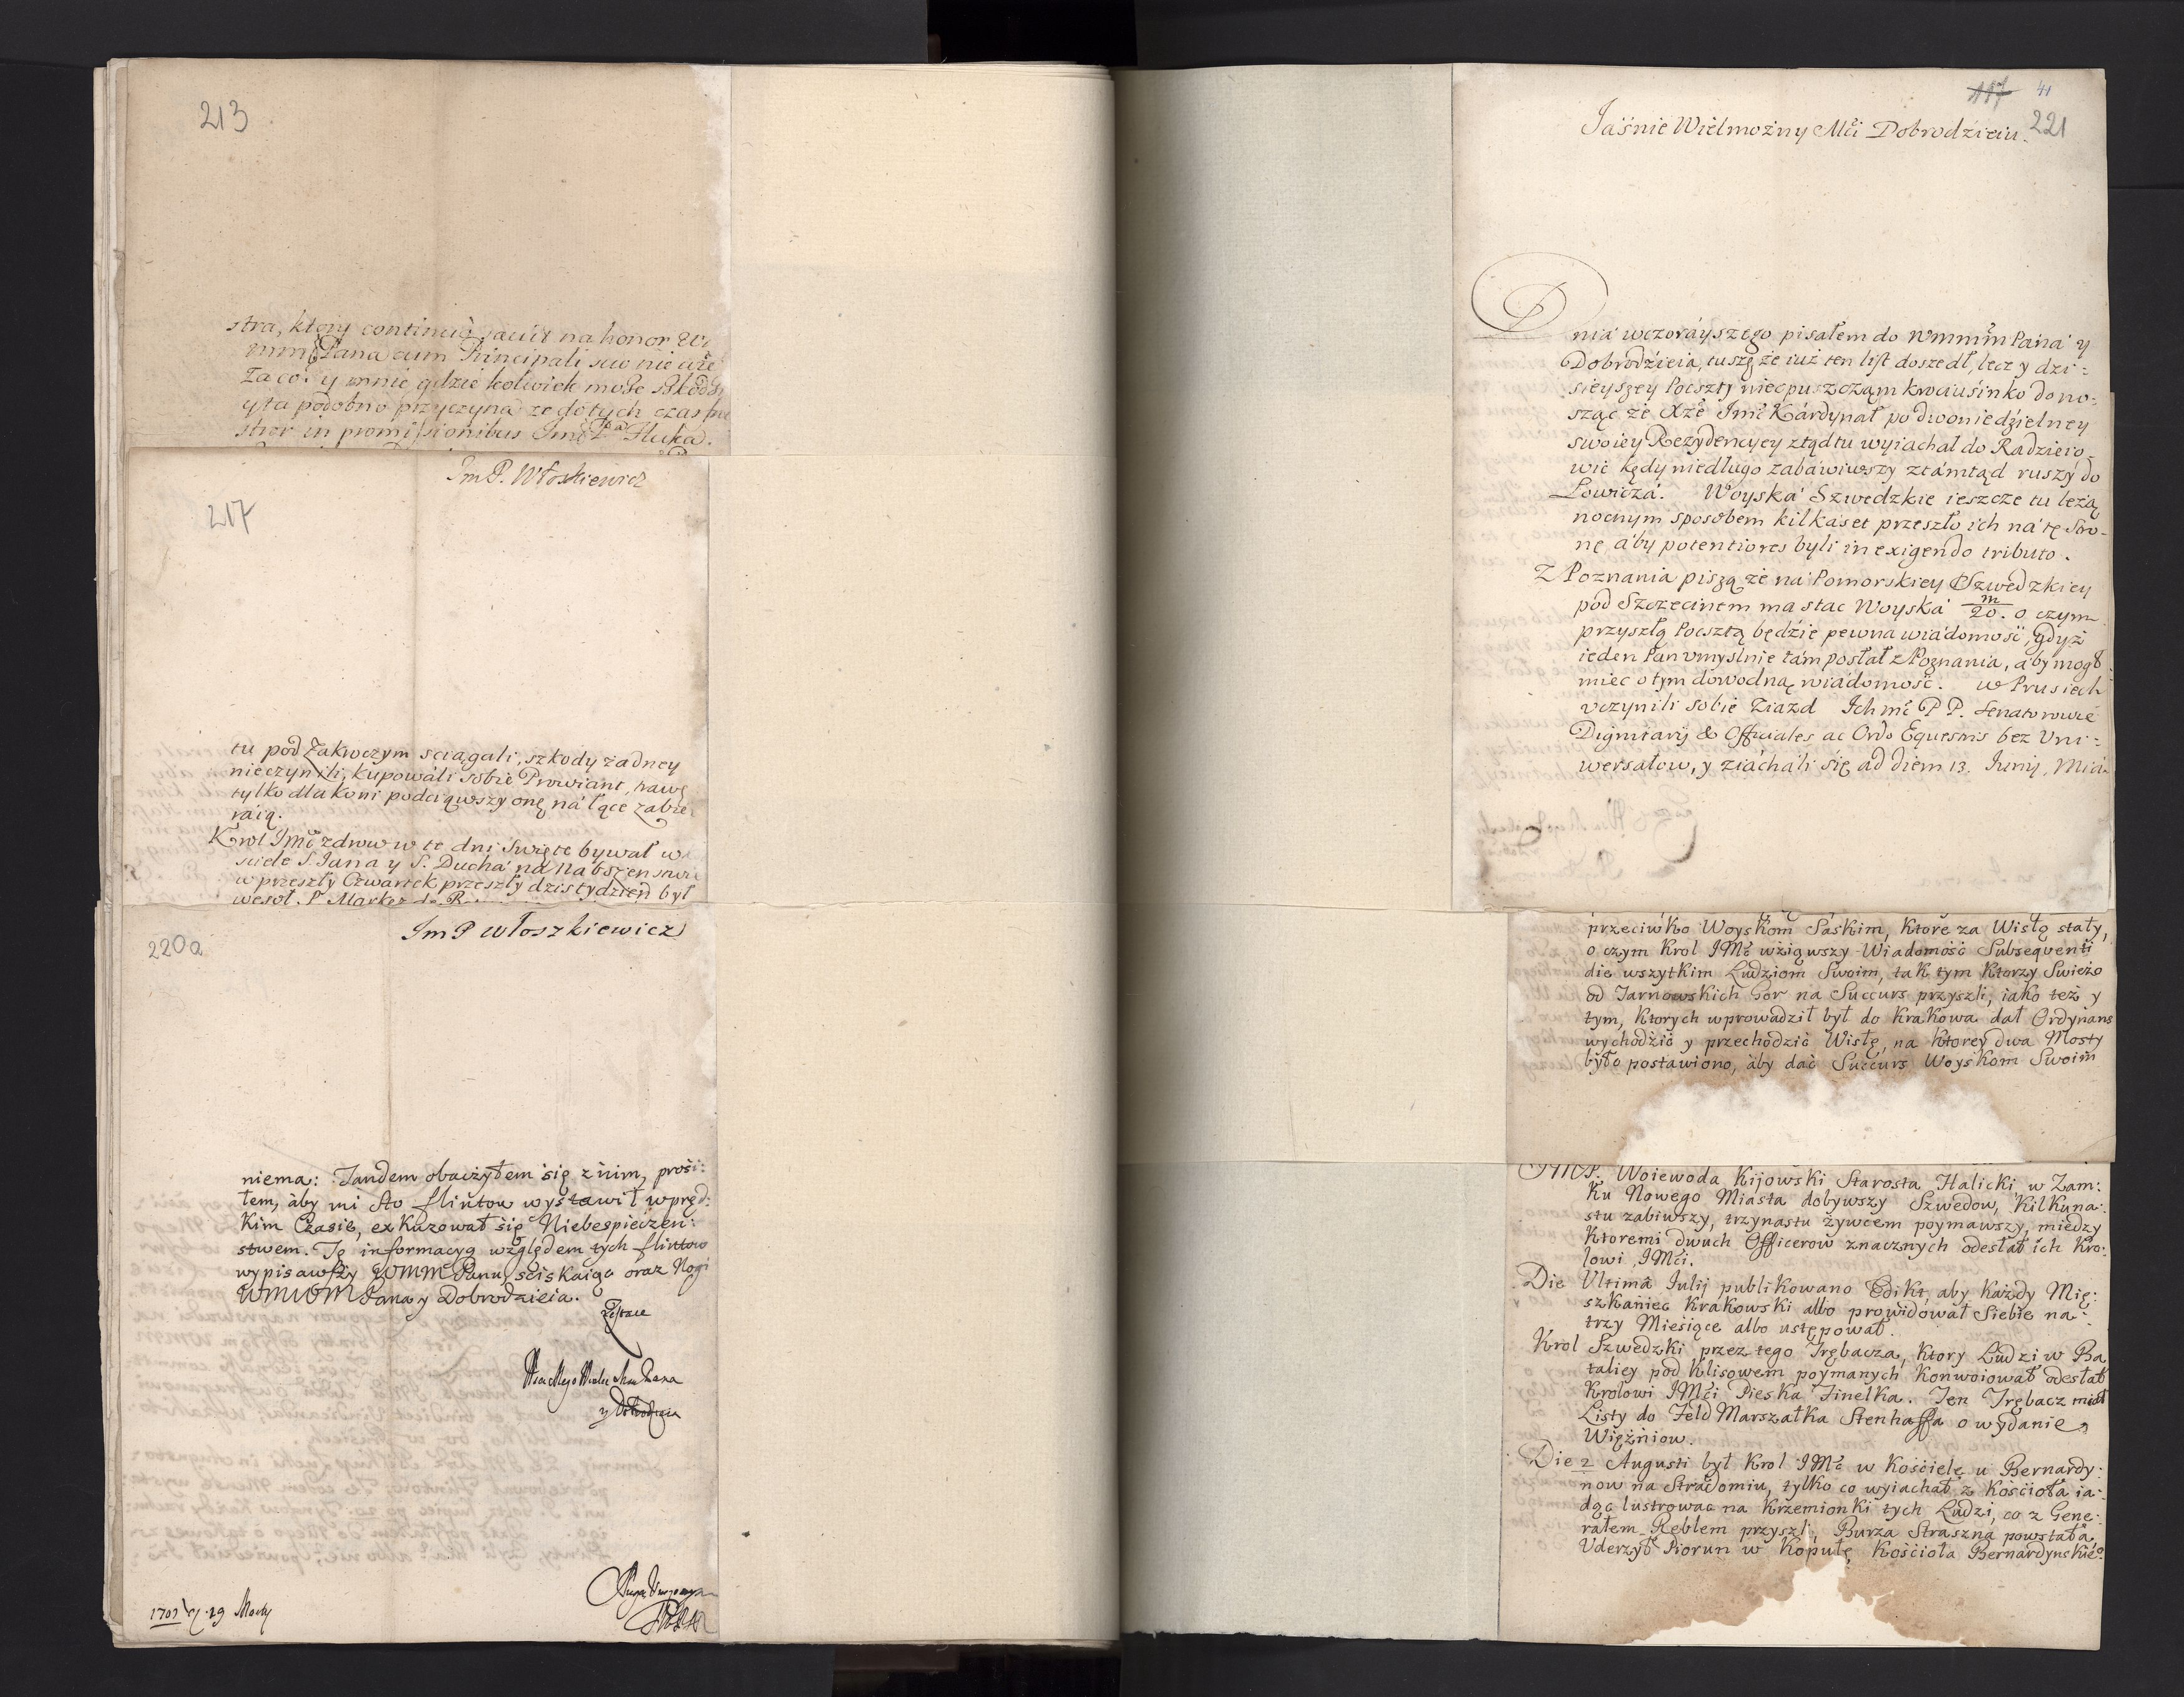 213
stra, ktory continuo jacúit na honor
Pana cum Principali suo nie
Zaco: y mnie gdzie kolwiek może
y ta podobno przyczyna ze dotych czas
in promissionibus Huka.
Im P. Włoskiewicz
217
tu pod Zakroczym sciągali, szkody żadney
nieczynili, kupowáli sobie Prowiant, trawę
tylko dla koni podciąwszy onę ná łące zabie
raią.
Krol JMć zdrów w te dni Swięte bywał w
sciele S. Jana y S. Duchá ná Nabożenstwie
w przeszły Czwartek przeszły dzis tydzień był
wesoł. P. Markez de
Im P Włoszkiewicz
220a
niema: Tandem obaczyłem się z nim, prosi:
łem, àby mi sto flintow wystawił w pręd:
kim Czasie, exkuzował się Niebespieczen:
stwem. Tę informacyą względem tych flintow
wypisawszy WMM Panu, sciskaiąc oraz Nogi
WMWM Pana y Dobrodzieia.
Zostaie
Pana
y Dobrodzieia
1702 29
117 41
Jáśnie Wielmożny Mći Dobrodzieiu. 221
Dniá wczoráyszego pisałem do Wmmm Páná y
Dobrodzieia, tuszę że iuż ten list doszedł, lecz y dzi:
sieyszey Poczty nieopuszczam kwausinko dono:
sząc że Xżę Jmć Kárdynał po dwoniedzielney
swoiey Rezydencyey ztąd tu wyiachał do Radzieio:
wic kędy niedługo zabáwiwszy ztámtąd ruszy do
Łowiczá. Woyská Szwedzkie ieszcze tu leżą
nocnym sposobem kilkaset przeszło ich ná tę Stro-
nę, áby potentiores byli in exigendo tributo.
Z Poznania piszą że ná Pomorskiey Szwedzkiey
pod Szczecinem ma stac Woyská m/20. o czym
przyszłą Pocztą będzie pewna wiádomość, gdyż
ieden Pan vmyslnie tám posłał z Poznania, áby mogł
miec o tym dowodną wiadomość. w Prusiech
vczynili sobie Ziazd Ichmć P P. Senatorowie
Dignitarij & Officiales ac Ordo Equestris bez Vni:
wersałow, y ziácháli się ad diem 13. Junij, Miá
przeciwko Woyskom Sáskim, ktore za Wisłą stały,
o czym Krol JMć wziąwszy Wiadomość Subsequenti
die wszytkim Ludziom Swoim, tak tym ktorzy Swieżo
od Tarnowskich Gor na Succurs przyszli, iako też y
tym, ktorych wprowadził był do Krakowa dał Ordynans
wychodzić y przechodzić Wisłę, na ktorey dwa Mosty
było postawiono, àby dać Succurs Woyskom Swoim
JMP. Woiewoda Kijowski Starosta Halicki w Zam:
ku Nowego Miasta dobywszy Szwedow, kilkuna:
stu zabiwszy, trzynastu żywcem poymawszy, miedzy
ktoremi dwuch Officerow znacznych odesłał ich Kro:
lowi JMći.
Die Ultimâ Julij publikowano Edikt, aby każdy Mię:
szkaniec Krakowski albo prowidował Siebie na
trzy Miesiące albo ustępował.
Krol Szwedzki przez tego Trębacza, ktory Ludzi w Ba
taliey pod Klisowem poymanych konwoiował odesłał
Krolowi JMći Pieska Finelka. Ten Trębacz miał
Listy do Feld Marszałka Stenhaffa o wydanie
Więźniow.
Die 2 Augusti był Krol JMć w Kosciele u Bernardy:
now na Stradomiu, tylko co wyiachał z Kościoła ia:
dąc lustrowac na Krzemionki tych Ludzi, co z Gene:
rałem Reblem przyszli, Burza Straszna powstała
Vderzył Piorun w Kopułę Kościoła Bernardynskieo